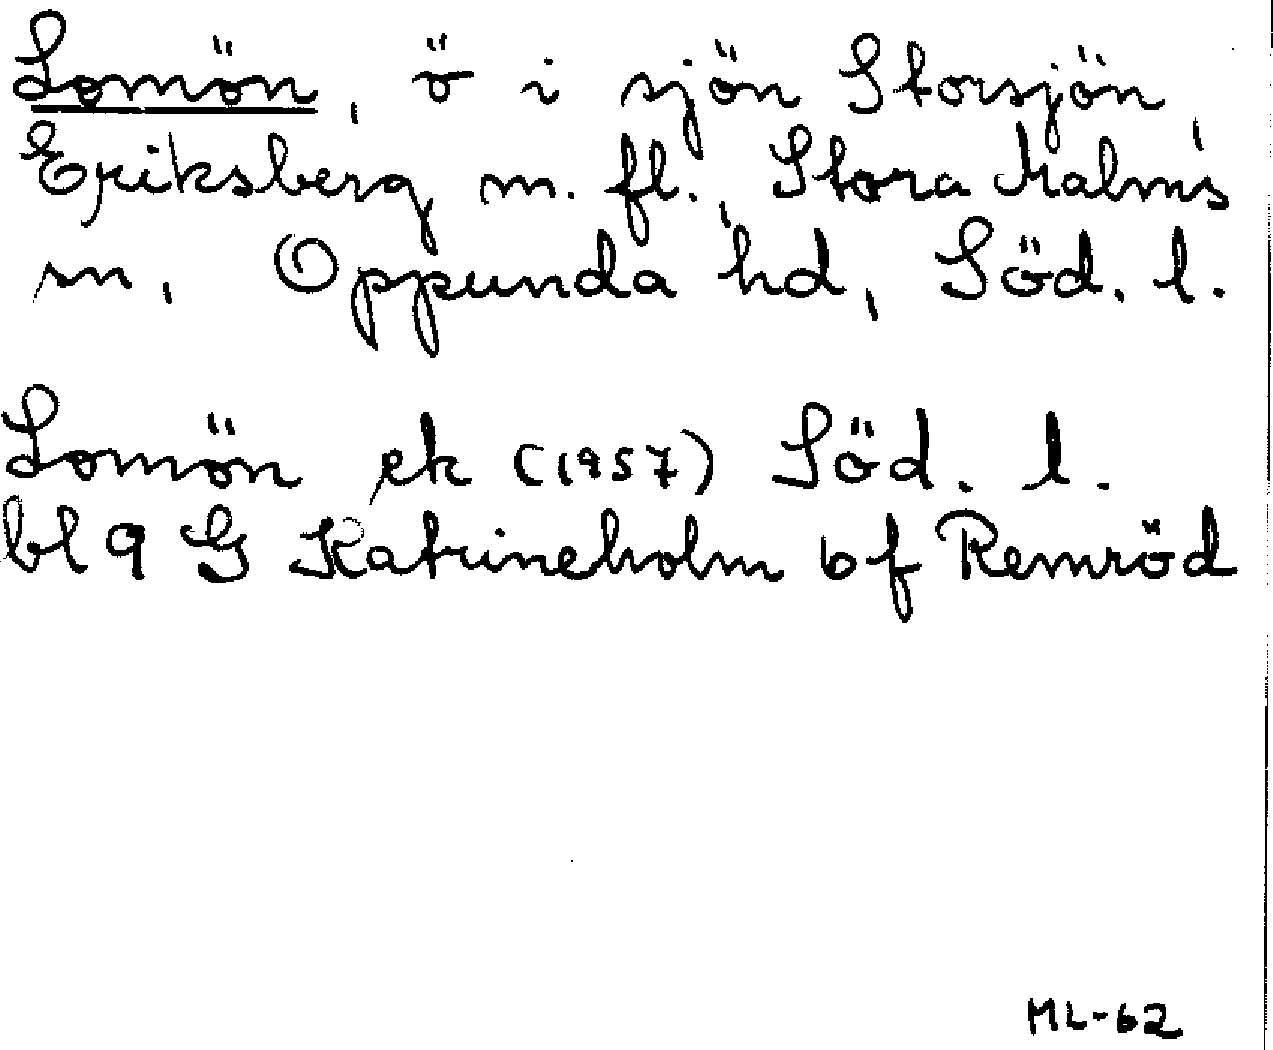 Lomön, ö i sjön Storsjön,
Eriksberg m. fl., Stora Malms
sn, Oppunda hd, Söd. l.
Lomön ek (1957) Söd. l.
bl 9 G Katrineholm bf Remröd
ML-62